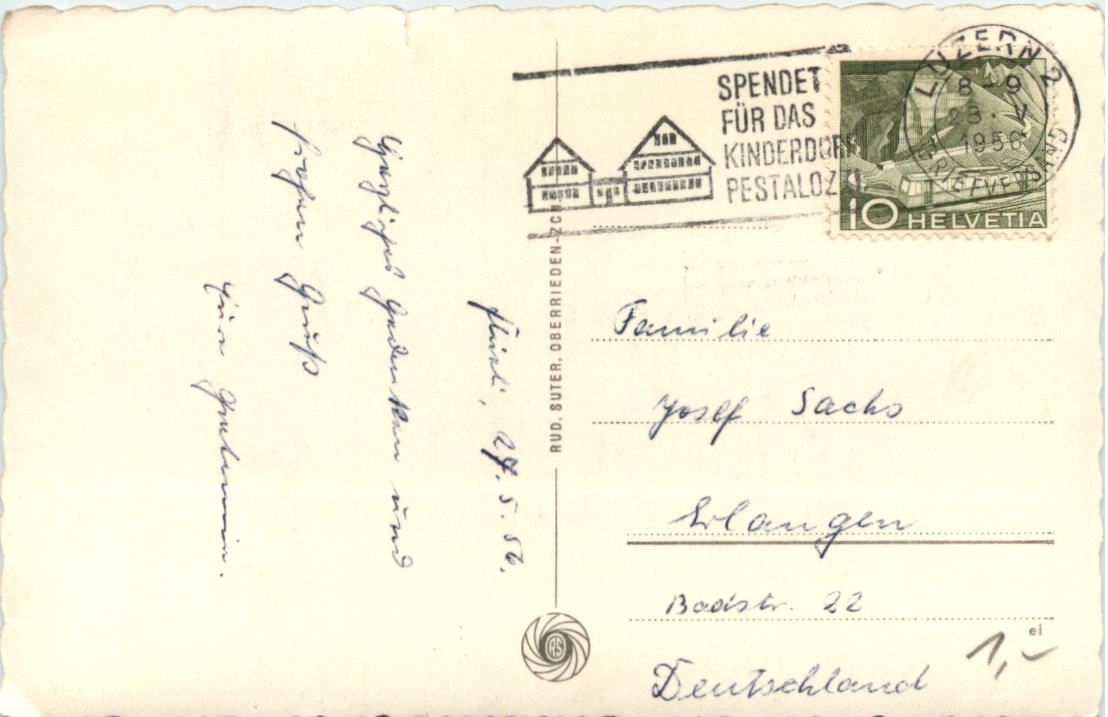 SPENDET
FÜR DAS
KINDERDORF
PESTALOZZI
LUZERN 2
8-9
28. V
1956
BRIEFVERSAND
10 HELVETIA
Flüeli, 27.5.56.
Herzliches Gedenken und
frohen Gruß
RUD. SUTER, OBERRIEDEN-ZCH
Familie
Josef Sachs
Erlangen
Badstr. 22
Deutschland
RS
ei
1,-